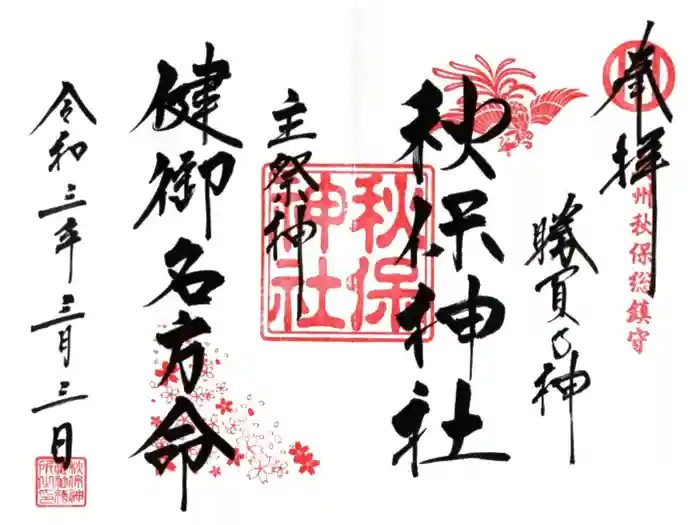 奉拝
州秋保総鎮守
勝負の神
秋保神社
秋保神社
主祭神
健御名方命
令和三年三月三日